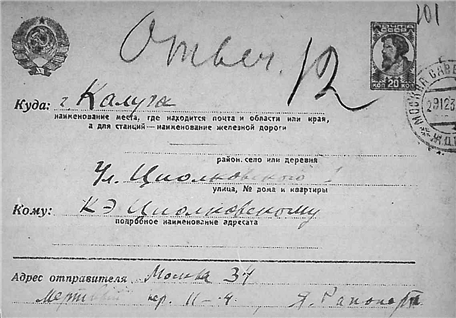 101
Отвеч. 12
20
КОП
МОСКВА
29123
Куда: г Калуга
наименование места, где находится почта и области или края,
а для станций — наименование железной дороги
район, село или деревня
Ул. Циолковского 1
улица, № дома и квартиры
Кому: КЭ Циолковскому
подробное наименование адресата
Адрес отправителя Москва 34
пер. 11-4 Я. Рапопорт